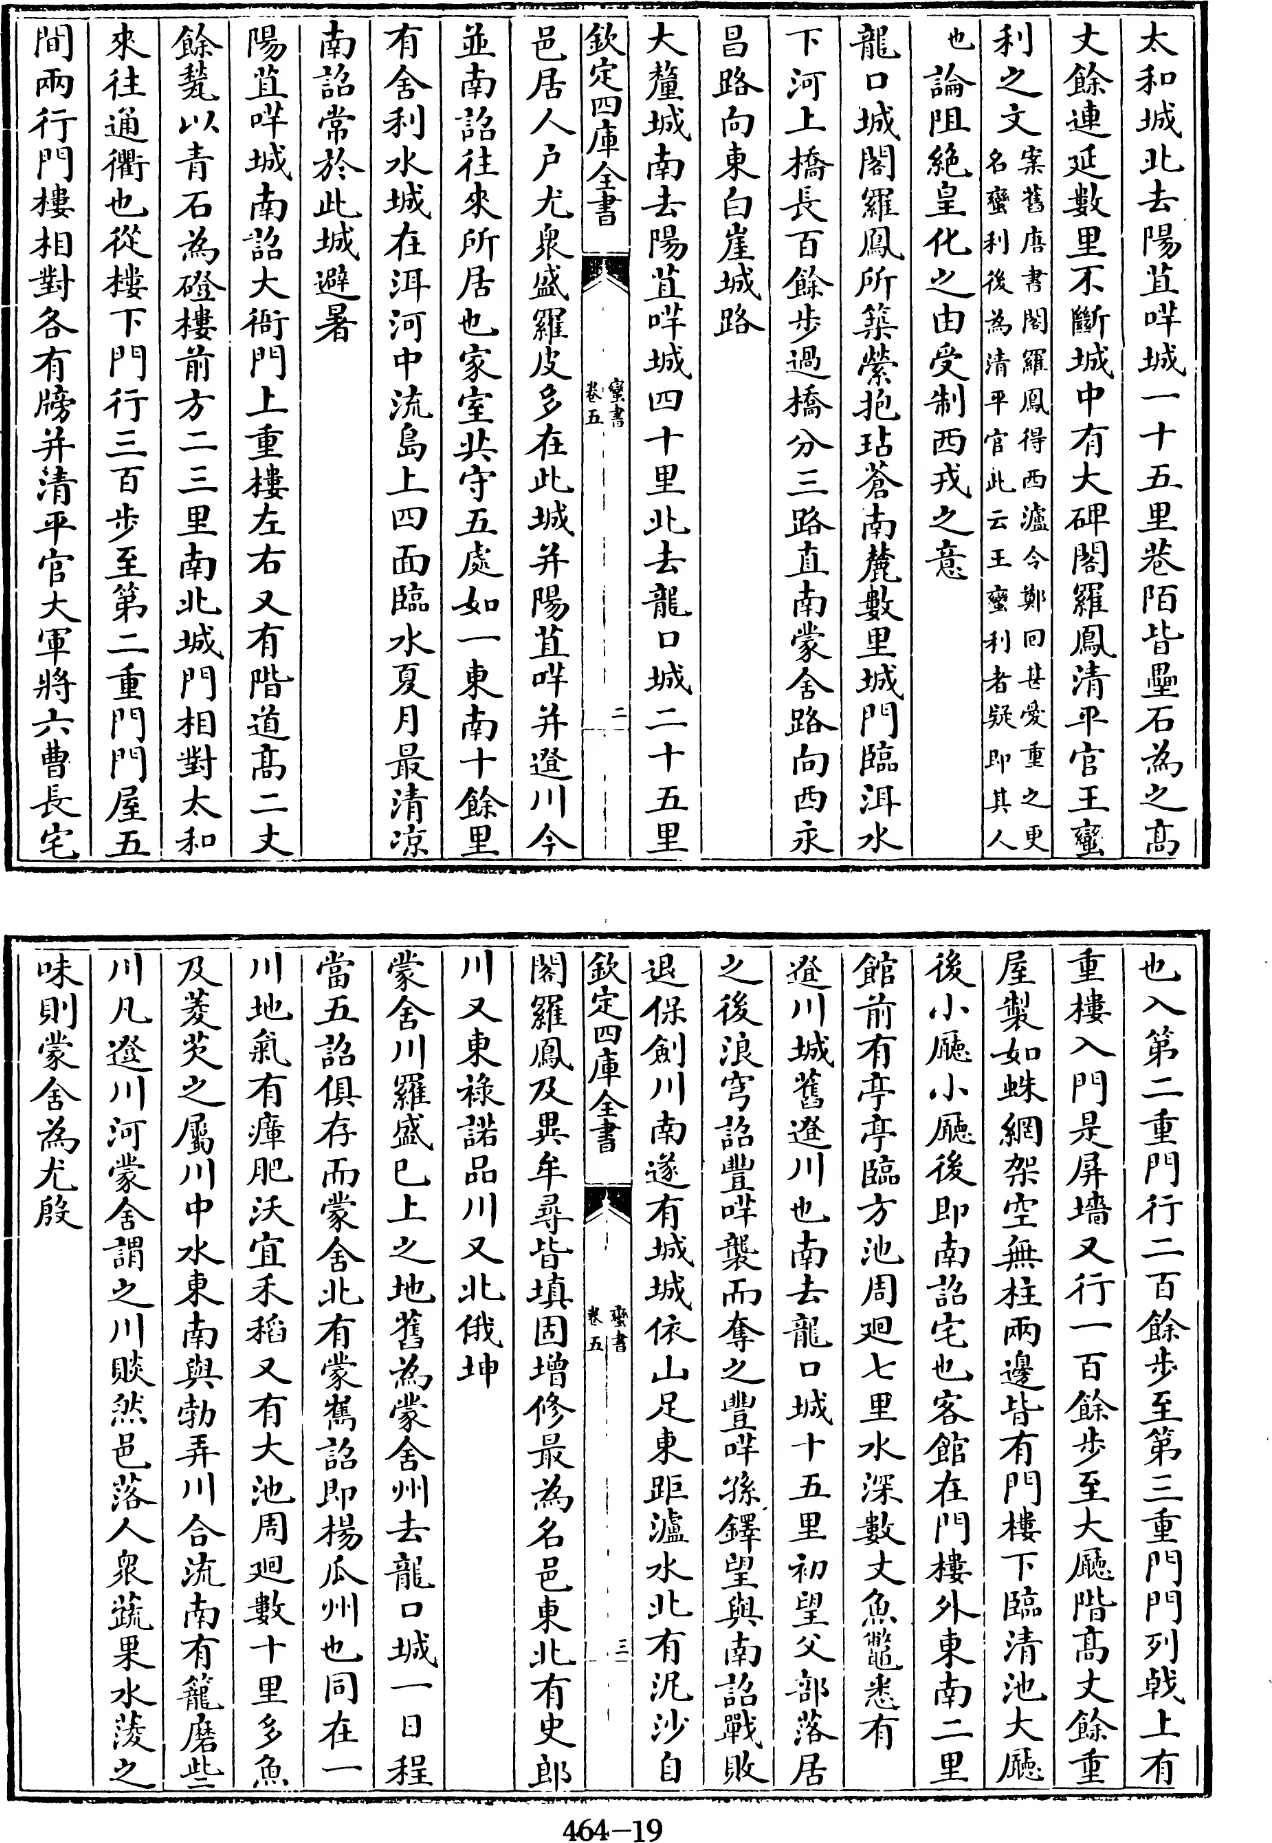 太和城北去陽苴咩城一十五里巷陌皆壘石為之髙
丈餘連延數里不斷城中有大碑閣羅鳳清平官王蠻
利之文案舊唐書閣羅鳳得西瀘令鄭回甚愛重之更
名蠻利後為清平官此云王蠻利者疑即其人
也論阻絶皇化之由受制西戎之意
龍口城閣羅鳳所築縈抱玷蒼南麓數里城門臨洱水
下河上橋長百餘步過橋分三路直南蒙舍路向西永
昌路向東白崖城路
大釐城南去陽苴咩城四十里北去龍口城二十五里
欽定四庫全書
蠻書
卷五
二
邑居人户尤衆盛羅皮多在此城并陽苴咩并邆川今
並南詔往來所居也家室共守五處如一東南十餘里
有舍利水城在洱河中流島上四面臨水夏月最清凉
南詔常於此城避暑
陽苴咩城南詔大衙門上重樓左右又有階道髙二丈
餘甃以青石為磴樓前方二三里南北城門相對太和
來往通衢也從樓下門行三百步至第二重門門屋五
間兩行門樓相對各有牓并清平官大軍將六曹長宅
也入第二重門行二百餘步至第三重門門列㦸上有
重樓入門是屏墻又行一百餘步至大廳階髙丈餘重
屋製如蛛網架空無柱兩邊皆有門樓下臨清池大廳
後小廳小廳後即南詔宅也客館在門樓外東南二里
館前有亭亭臨方池周廻七里水深數丈魚鼈悉有
邆川城舊邆川也南去龍口城十五里初望父部落居
之後浪穹詔豐咩襲而奪之豐咩孫鐸望與南詔戰敗
退保劍川南遂有城城依山足東距瀘水北有泥沙自
欽定四庫全書
蠻書
卷五
三
閣羅鳳及異牟尋皆填固增修最為名邑東北有史郎
川又東祿諾品川又北俄坤
蒙舍川羅盛已上之地舊為蒙舍州去龍口城一日程
當五詔俱存而蒙舍北有蒙嶲詔即楊瓜州也同在一
川地氣有瘴肥沃宜禾稻又有大池周廻數十里多魚
及菱芡之屬川中水東南與勃弄川合流南有籠磨些
川凡邆川河蒙舍謂之川賧然邑落人衆蔬果水蔆之
味則蒙舍為尤殷
464-19